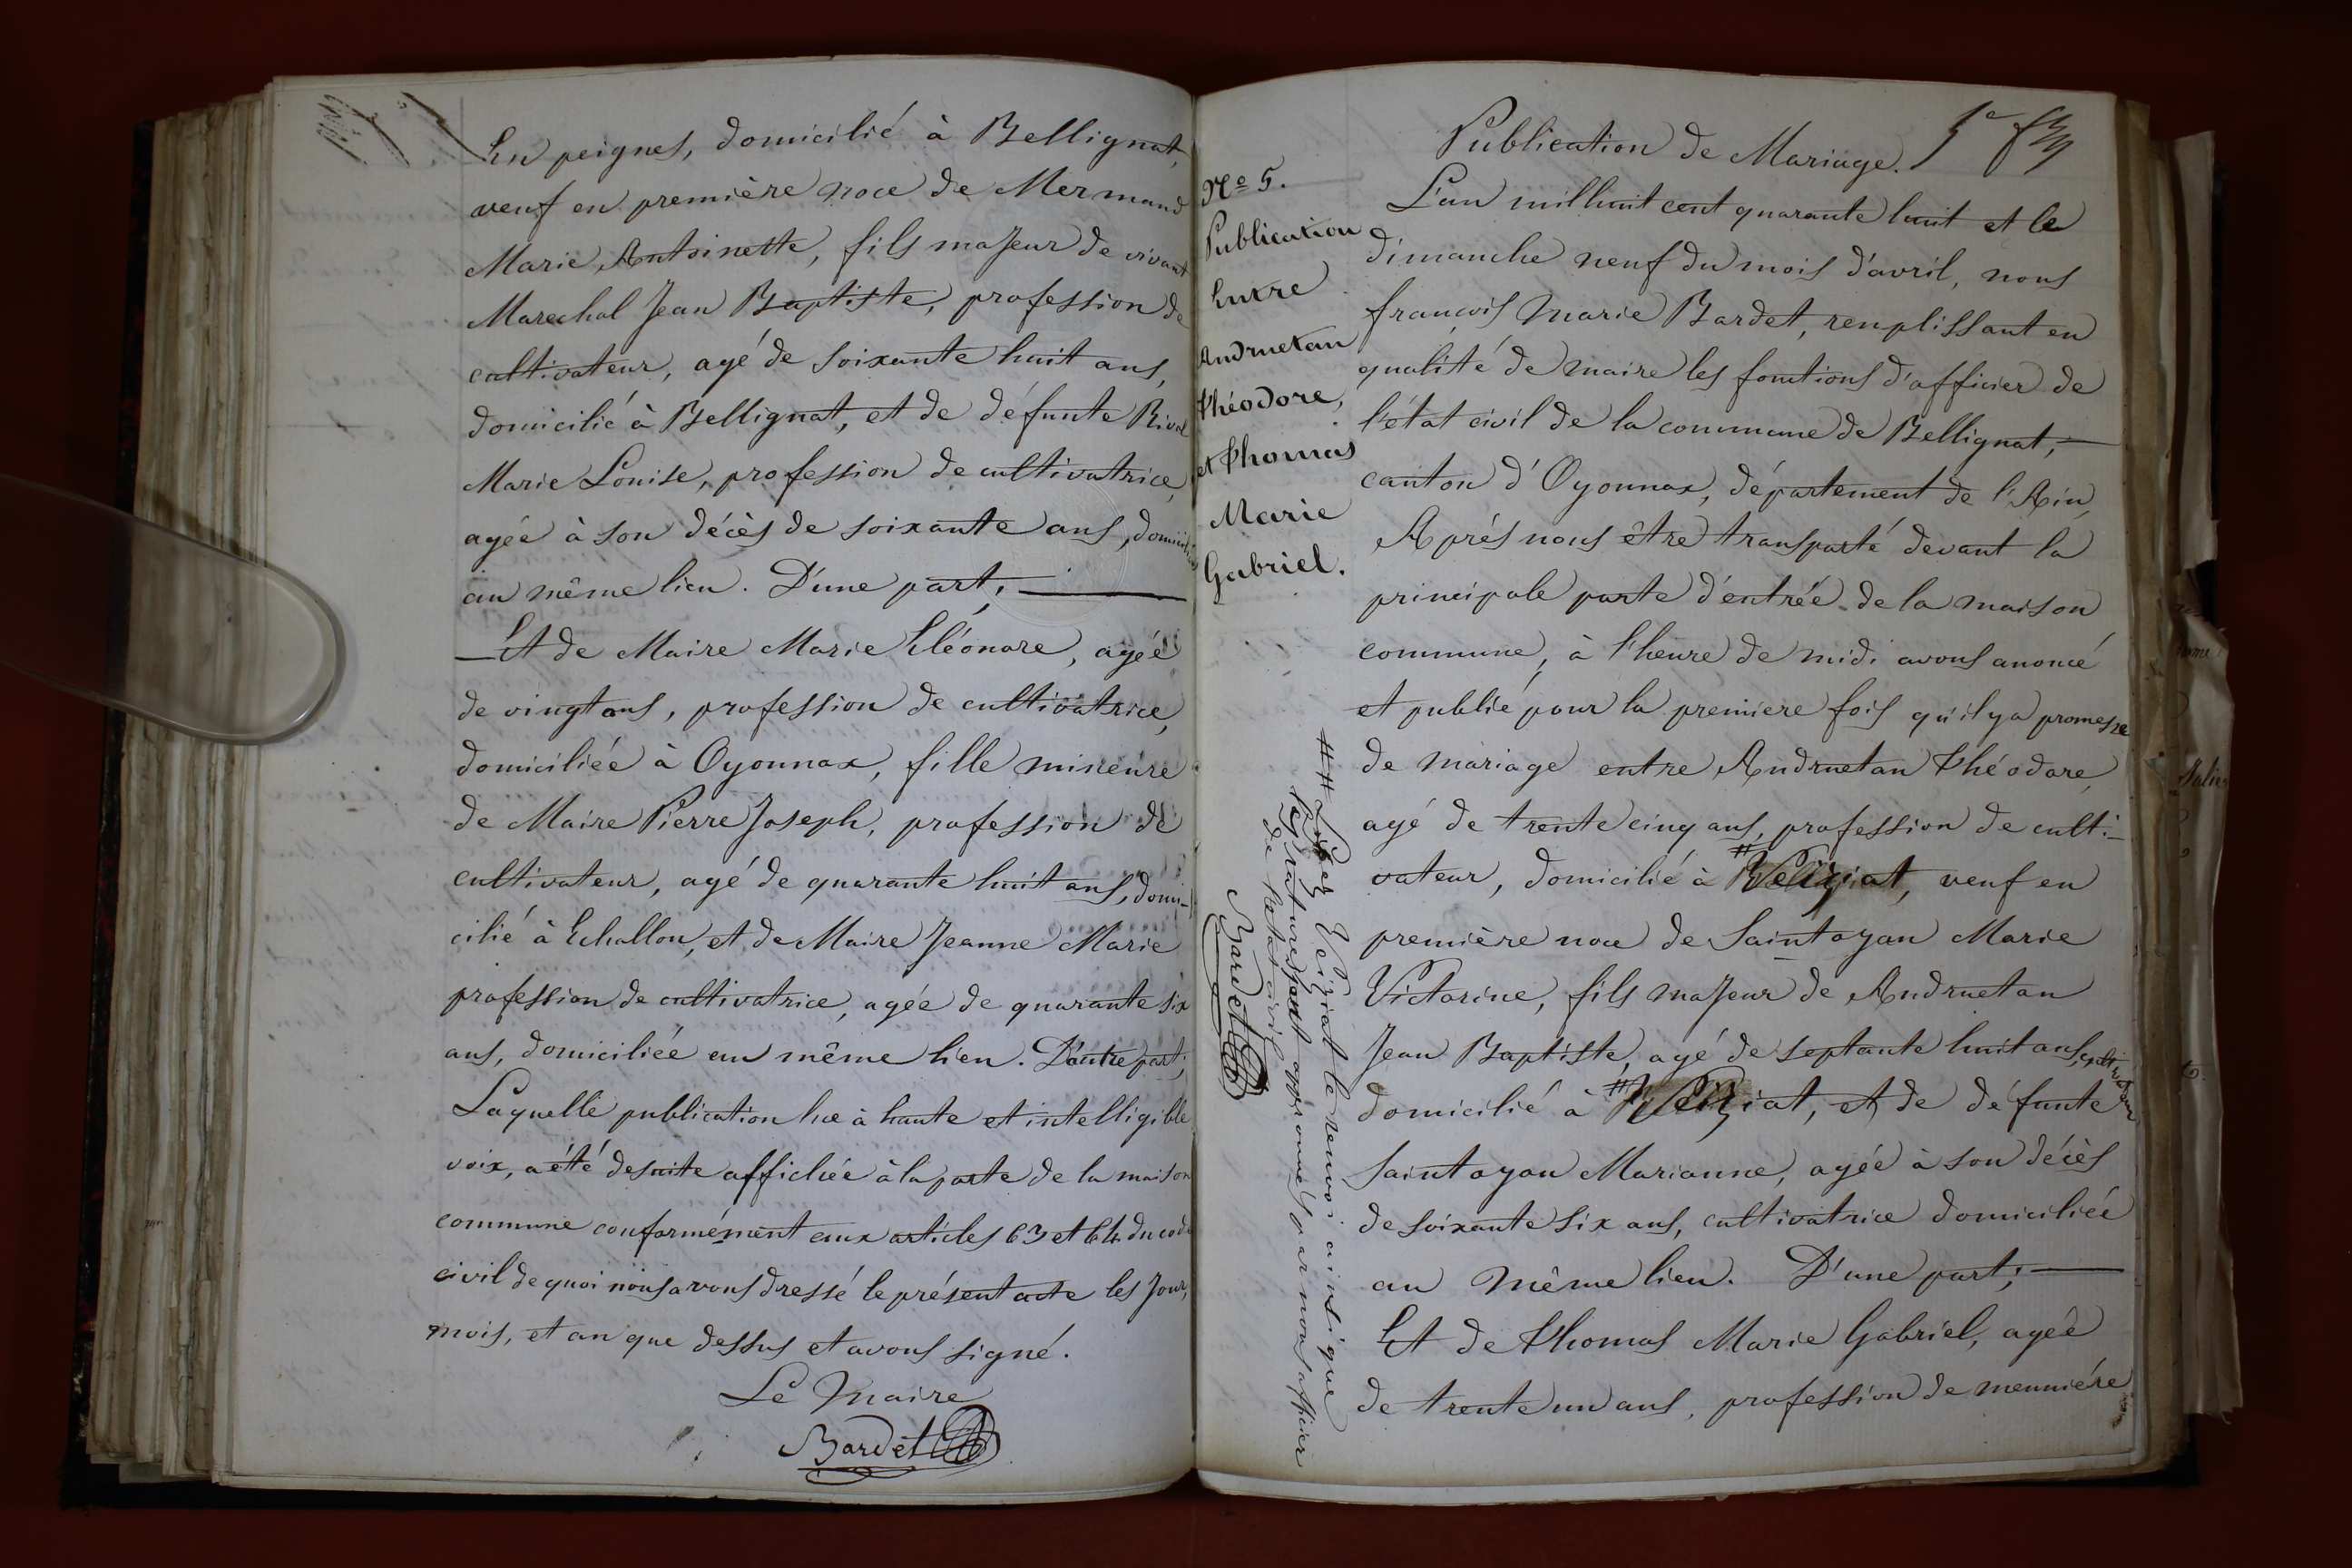 En peignes, domicilié à Bellignat,
veuf en première noce de Mermand
Marie Antoinette, fils majeur de vivant
Marechal Jean Baptiste, profession de
cultivateur, agé de soixante huit ans,
domicilié à Bellignat, et de défunte Rival
Marie Louise, profession de cultivatrice,
agée à son décès de soixante ans, domiciliée
au même lieu. D'une part;
Et de Maire Marie Eléonore, agéé
de vingt ans, profession de cultivatrice,
domiciliéé à Oyonnax, fille mineure
de Maire Pierre Joseph, profession de
cultivateur, agé de quarante huit ans, domi-
cilié à Echallon, et de Maire Jeanne Marie
profession de cultivatrice, agée de quarante six
ans, domiciliéé au même lieu. D'autre part;
Laquelle publication lue à haute et intelligible
voix, a été desuite affichéé à la porte de la maison
commune conformément aux articles 63 et 64 du code
civil de quoi nous avons dressé le présent acte les jour,
mois, et an que dessus et avons signé.
Le Maire
Bardet
No 5.
Publication
Entre
Andruetan
Théodore,
et Thomas
Marie
Gabriel.
## Lisez Veiziat le renvoi ainsi que
les ratures sont approuvés par nous officier
de l'état civil
Bardet
Publication de Mariage. 5e f
L'an mil huit cent quarante huit et le
dimanche neuf du mois d'avril, nous
françois Marie Bardet, remplissant en
qualité de maire les fonctions d'officier de
l'état civil de la commune de Bellignat,
canton d'Oyonnax, département de l'Ain,
Aprés nous être transporté devant la
principale porte d'entréé de la maison
commune, à l'heure de midi avons anoncé
et publié pour la premiere fois qu'il y a promesse
de mariage entre Andruetan Théodore,
agé de trente cinq ans, profession de culti-
vateur, domicilié à # Veiziat, veuf en
première noce de Saintoyan Marie
Victorine, fils majeur de Andruetan
Jean Baptiste, agé de septante huit ans, cultivateur
domicilié à # Veiziat, et de défunte
Saintoyan Marianne, agéé à son décès
de soixante six ans, cultivatrice domiciliéé
au même lieu. D'une part;
Et de Thomas Marie Gabriel, agéé
de trente un ans, profession de meuniére